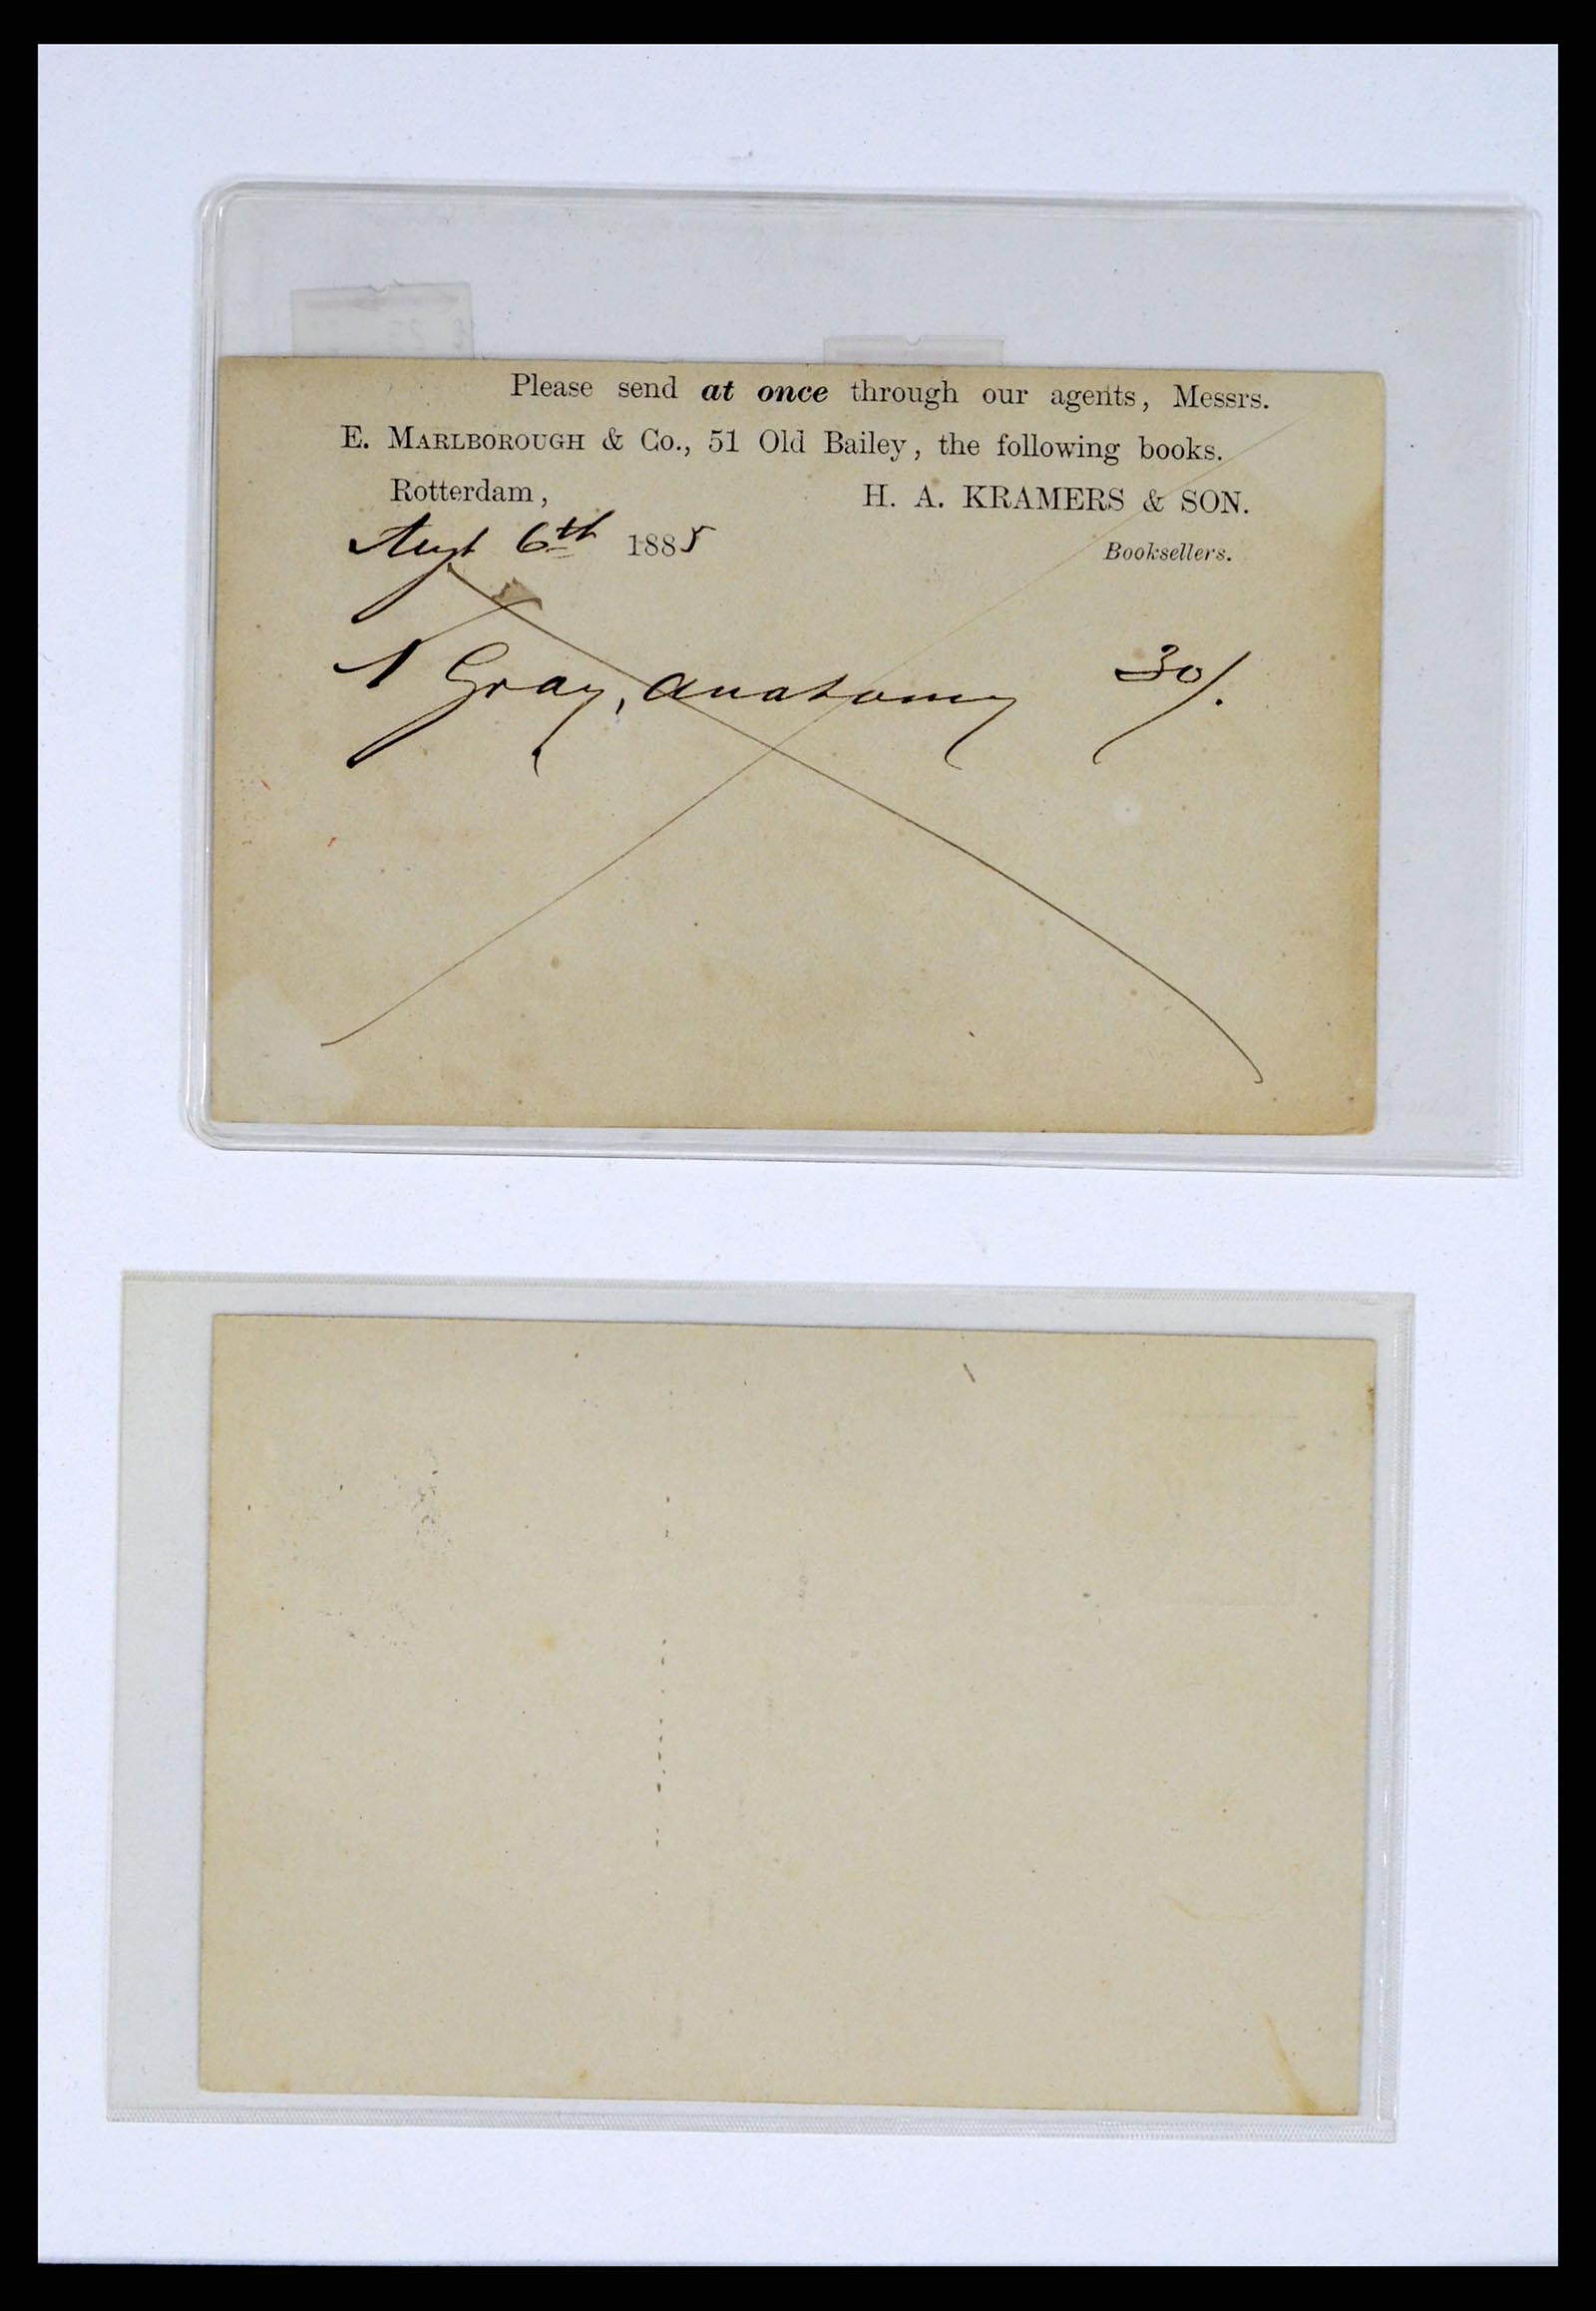 Please send at once through our agents, Messrs.
E. MARLBOROUGH & Co., 51 Old Bailey, the following books.
Rotterdam, H. A. KRAMERS & SON.
Augt 6th 1885 Booksellers.
1 Gray, Anatomy 30/.